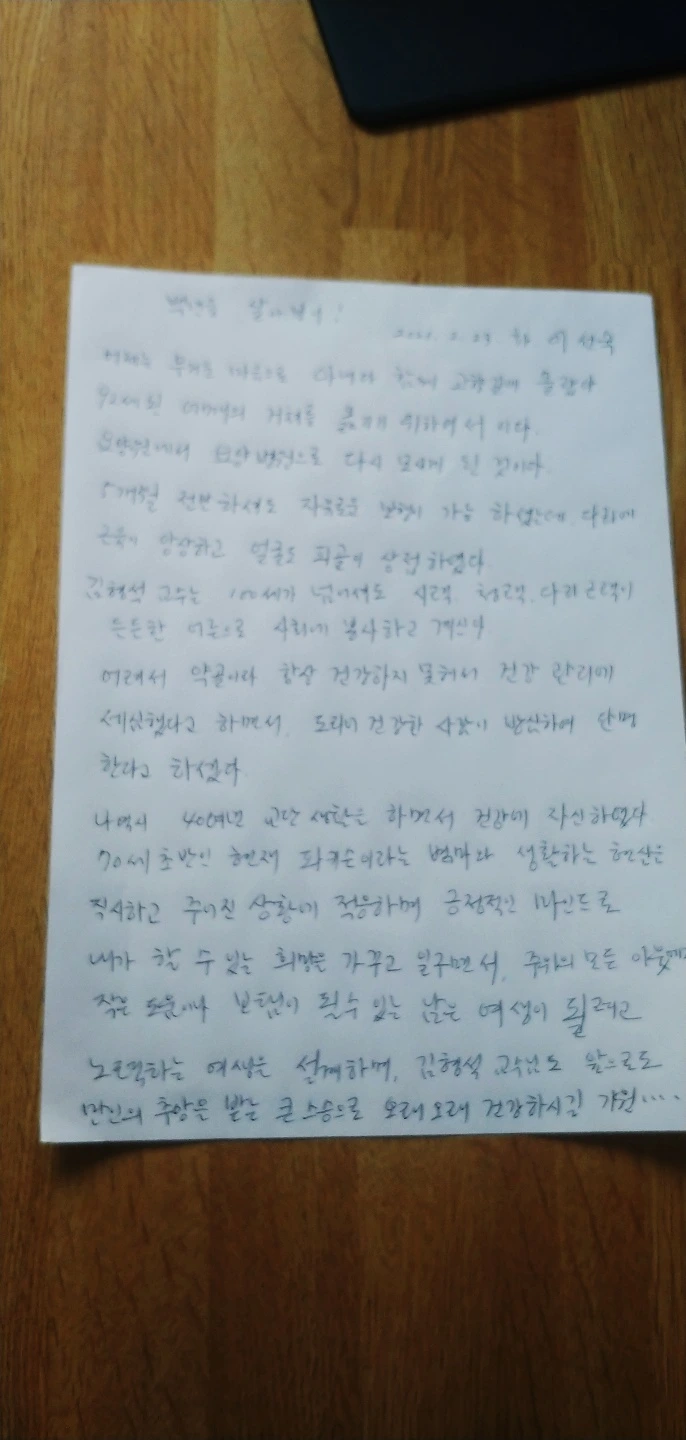 백년을 살아보니!
이선숙
어제는 무거운 마음으로 아내와 함께 고향길에 올랐다
92세된 어머니의 거처를 옮기기 위하여서 이다.
요양원에서 요양병원으로 다시 모시게 된 것이다.
5개월 전만하셔도 자유로운 보행이 가능 하셨는데, 다리에
근육이 앙상하고 얼굴도 피골이 상접 하였다.
김형석 교수는 100세가 넘어서도 시력, 청력, 다리 근력이
튼튼한 이론으로 사회에 봉사하고 계신다
어려서 약골이라 항상 건강하지 못하니 건강 관리에
세심했다고 하면서, 도리어 건강한 사람이 방심하여 단명
한다고 하셨다.
나 역시 40여년 교단 생활은 하면서 건강에 자신하였다
70세 초반인 현재 파키슨이라는 병마와 생활하는 현실은
직시하고 주어진 상황에 적응하며 긍정적인 마인드로
내가 할 수 있는 희망은 가꾸고 일구면서, 주위의 모든 이웃에
작은 도움이나 보탬이 될수 있는 남은 여생이 될려고
노력하는 여생을 설계하며, 김형석 교수님도 앞으로도
만인의 추앙을 받는 큰 스승으로 오래오래 건강하시길 기원....